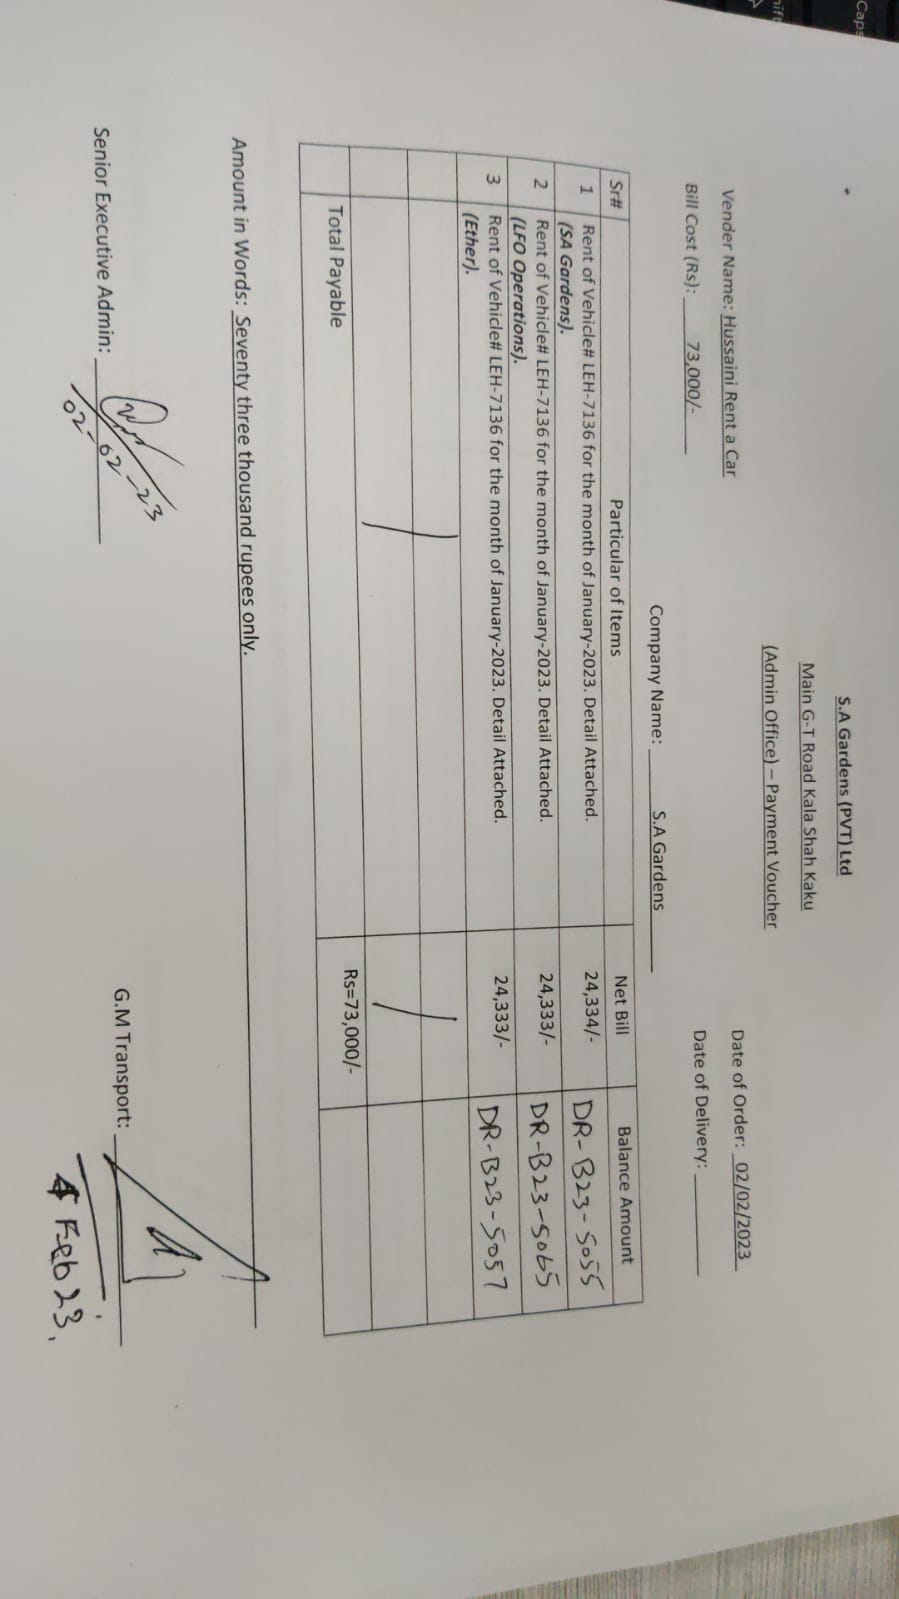 S.A Gardens (PVT) Ltd
Main G-T Road Kala Shah Kaku
(Admin Office) – Payment Voucher
Vender Name: Hussaini Rent a Car Date of Order: 02/02/2023
Bill Cost (Rs): 73,000/- Date of Delivery:
Company Name: S.A Gardens
Sr# Particular of Items Net Bill Balance Amount
1 Rent of Vehicle# LEH-7136 for the month of January-2023. Detail Attached. 24,334/- DR-B23-5055
(SA Gardens).
2 Rent of Vehicle# LEH-7136 for the month of January-2023. Detail Attached. 24,333/- DR-B23-5065
(LFO Operations).
3 Rent of Vehicle# LEH-7136 for the month of January-2023. Detail Attached. 24,333/- DR-B23-5057
(Ether).
Total Payable Rs=73,000/-
Amount in Words: Seventy three thousand rupees only.
Senior Executive Admin: G.M Transport:
02-02-23
4 Feb 23.
Caps